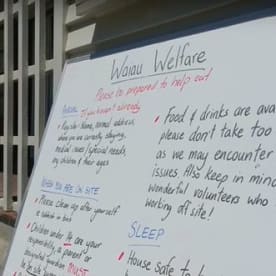 Waiau Welfare
Please be prepared to help out
ARRIVAL If you haven't already
• Register - Name, normal address,
where you are currently staying,
medical issues / special needs,
any children & their ages
WHEN YOU ARE ON SITE
• Please clean up after yourself
a rubbish in bin
• Children under 14 are your
responsibility, a parent or
designated guardian MUST
• Food & drinks are ava
please don't take too
as we may encounter
issues. Also keep in mind
wonderful volunteers who
working off site!
SLEEP
House safe to